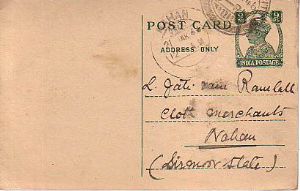 POST CARD
ADDRESS ONLY
INDIA POSTAGE
NAHAN
L. Jati Ram Ramlall
Cloth merchants
Nahan
(Sirmoor State)